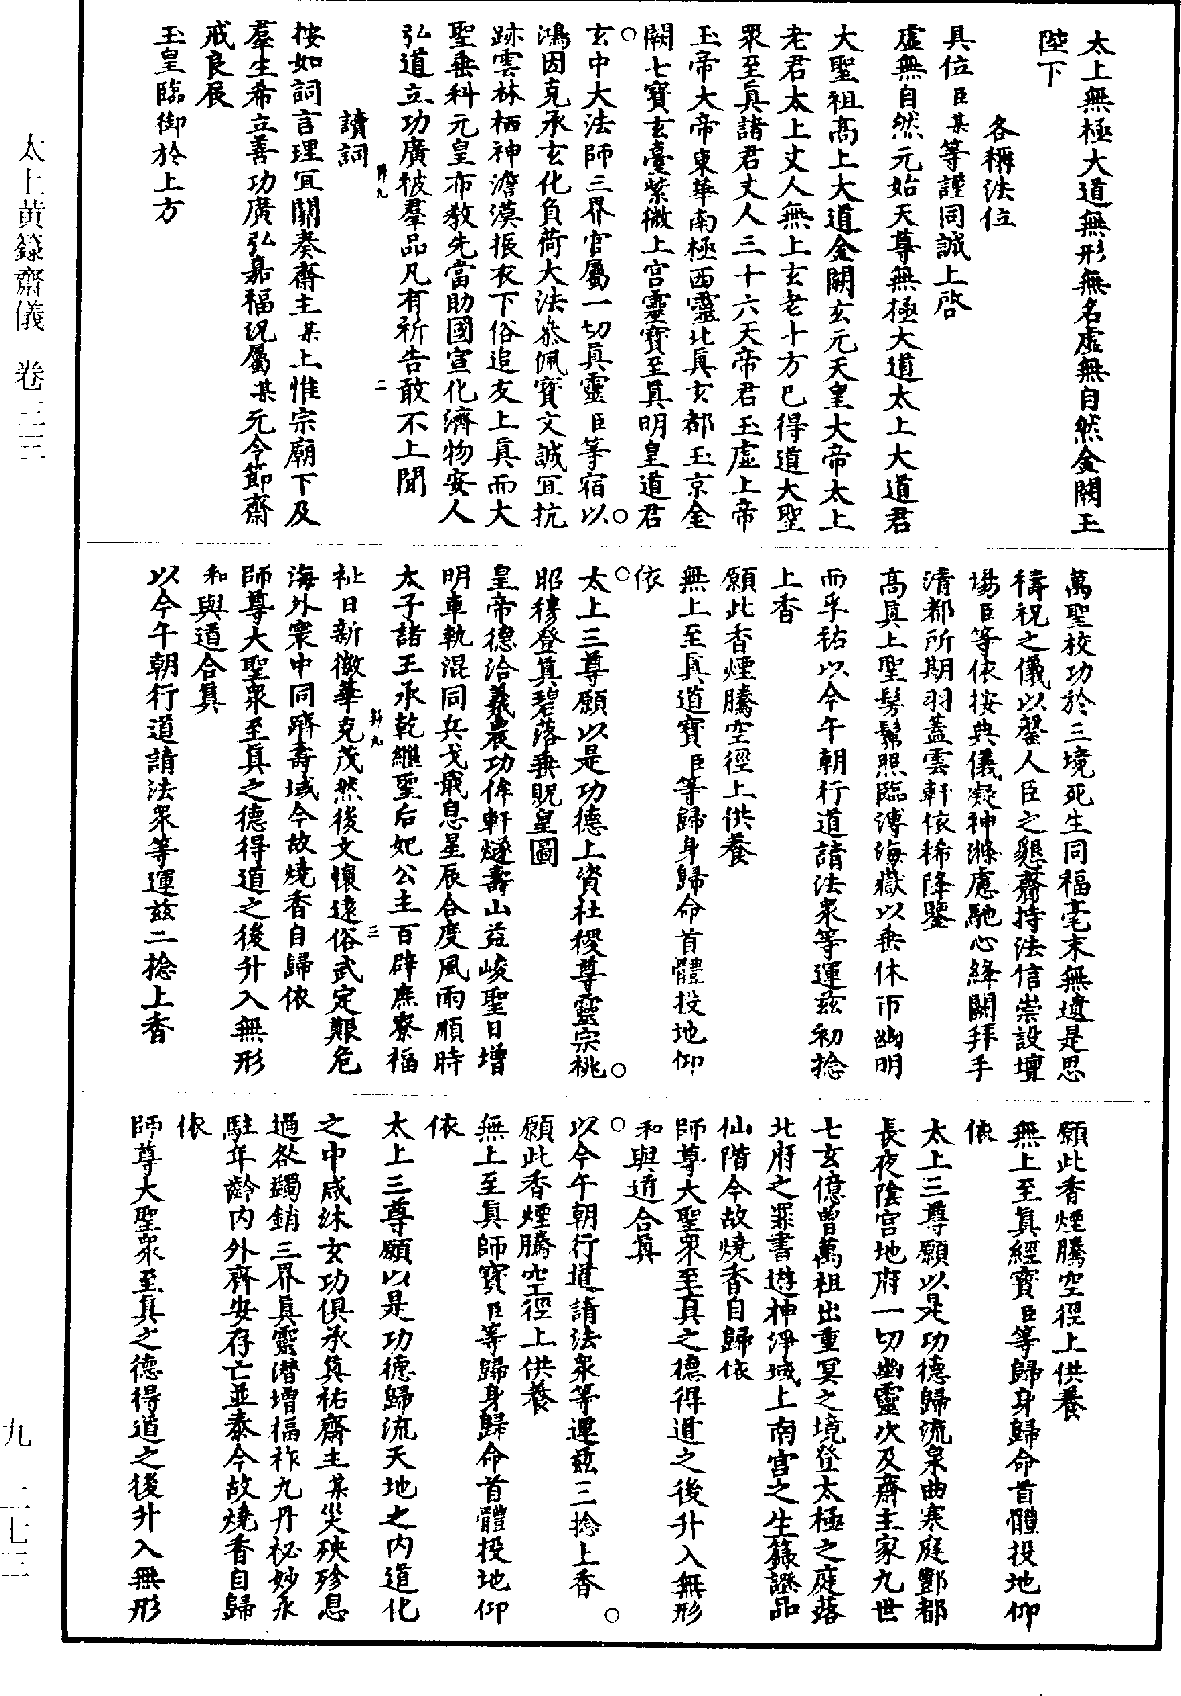 太上無極大道無形無名虛無自然金闕玉
陛下
各稱法位
具位臣某等謹同誠上啓
虛無自然元始天尊無極大道太上大道君
大聖祖高上大道金闕玄元天皇大帝太上
老君太上丈人無上玄老十方已得道大聖
眾至真諸君丈人三十六天帝君玉虛上帝
玉帝大帝東華南極西靈北真玄都玉京金
闕七寶玄臺紫微上宮靈寶至真明皇道君
玄中大法師三界官屬一切真靈臣等宿以
鴻因克承玄化負荷大法恭佩寶文誠宜抗
跡雲林栖神澹漠振衣下俗追友上真而大
聖垂科元皇布教先當助國宣化濟物安人
弘道立功廣被羣品凡有祈告敢不上聞
讀詞
按如詞言理宜關奏齋主某上惟宗廟下及
羣生希立善功廣弘嘉福況屬某元令節齋
戒良辰
玉皇臨御於上方
萬聖校功於三境死生同福毫末無遺是思
禱祝之儀以罄人臣之懇齋持法信崇設壇
場臣等依按典儀凝神滌慮馳心絳闕拜手
清都所期羽蓋雲軒依稀降鑒
高真上聖髣髴照臨溥海嶽以垂休帀幽明
而孚祐以今午朝行道請法眾等運茲初捻
上香
願此香煙騰空徑上供養
無上至真道寶臣等歸身歸命首體投地仰
依
太上三尊願以是功德上資社稷尊靈宗祧
昭穆登真碧落垂貺皇圖
皇帝德洽羲農功侔軒燧壽山益峻聖日增
明車執混同兵戈戢息星辰合度風雨順時
太子諸王承乾繼聖后妃公主百辟庶寮福
祉日新徽華克茂然後文懷遠俗武定艱危
海外寰中同躋壽域今故燒香自歸依
師尊大聖眾至真之德得道之後升入無形
和與道合真
以今午朝行道請法眾等運茲二捻上香
願此香煙騰空徑上供養
無上至真經寶臣等歸身歸命首體投地仰
依
太上三尊願以是功德歸流泉曲寒庭酆都
長夜陰宮地府一切幽靈次及齋主家九世
七玄億曾萬祖出重冥之境登太極之庭落
北府之罪書遊神淨域上南宮之生籙證品
仙階今故燒香自歸依
師尊大聖眾至真之德得道之後升入無形
和與道合真
以今午朝行道請法眾等運茲三捻上香
願此香煙騰空徑上供養
無上至真師寶臣等歸身歸命首體投地仰
依
太上三尊願以是功德歸流天地之內道化
之中咸沐玄功俱承真祐齋主某災殃殄息
過咎蠲銷三界真靈潛增福祚九丹祕妙永
駐年齡內外齊安存亡並泰今故燒香自歸
依
師尊大聖眾至真之德得道之後升入無形
太上黃籙齋儀 卷二三
九 二七三